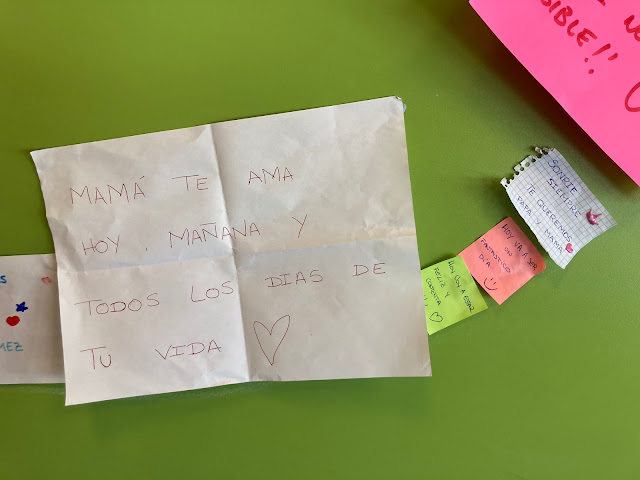 MAMÁ TE AMA
HOY, MAÑANA Y
TODOS LOS DIAS DE
TU VIDA
HOY VOY A ESTAR
FELIZ Y
CONTENTA
!!
HOY VA A SER
UN
FANTASTICO
DIA
SONRIE
SIEMPRE
TE QUEREMOS
PAPA Y MAMA
SIBLE!!
MEZ